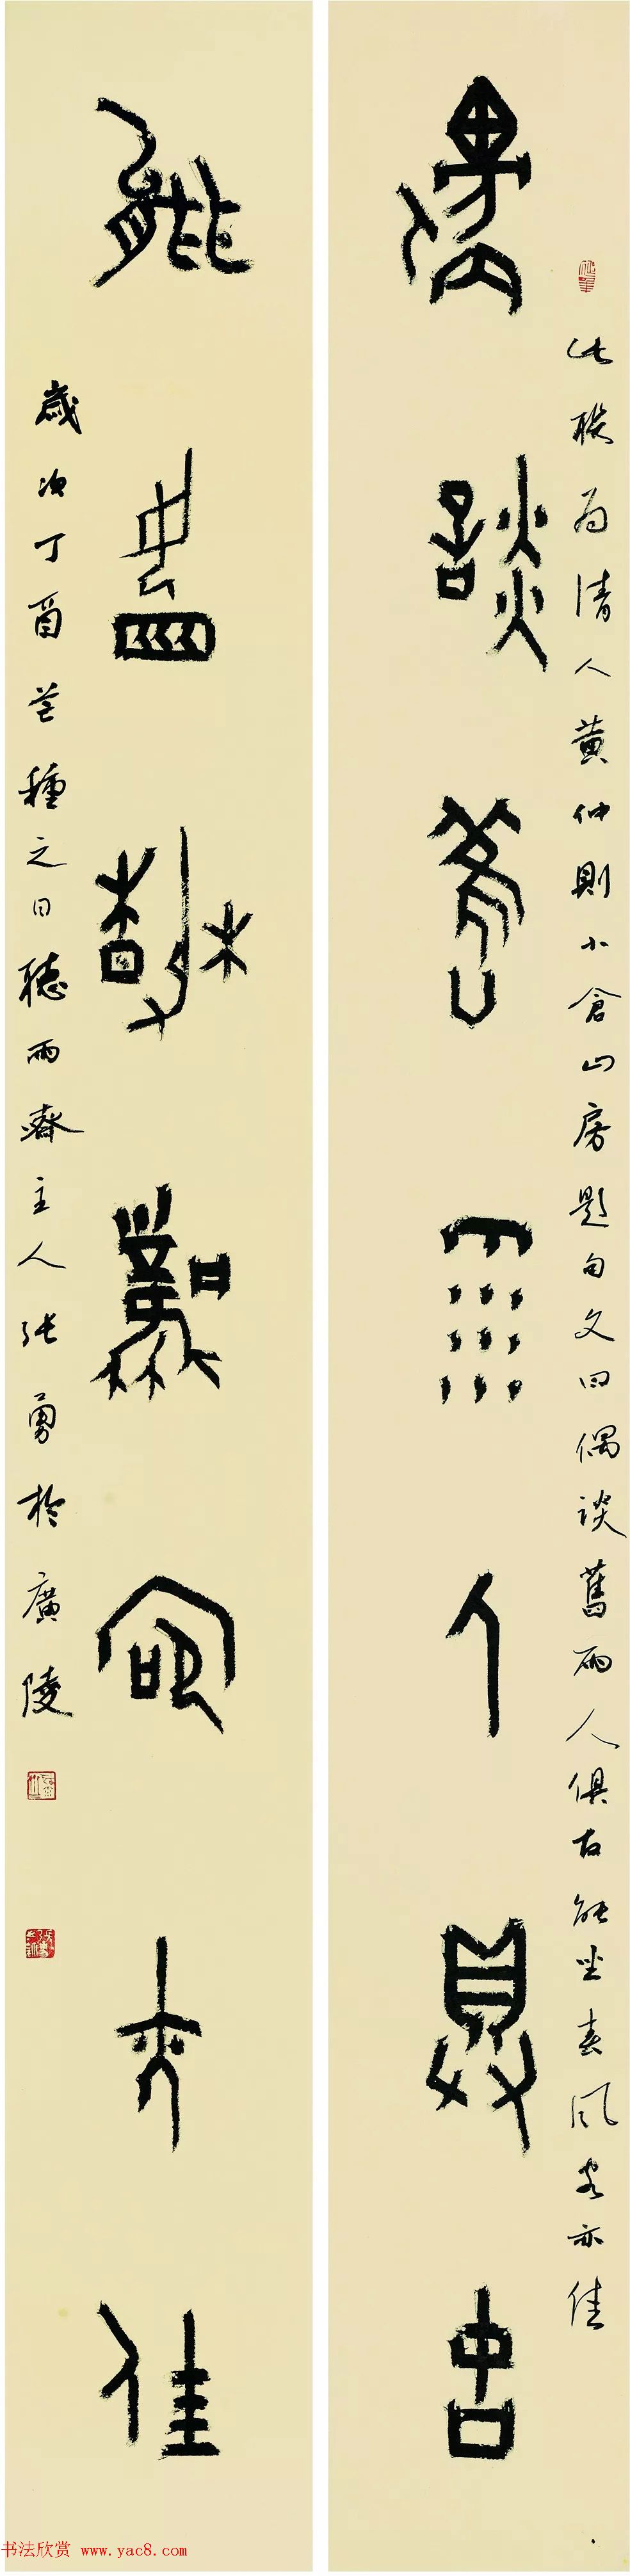 此聯为清人黄仲則小倉山房題句文曰偶談舊雨人俱古能坐春風客亦佳
偶談舊雨人俱古
能坐春風客亦佳
歲次丁酉芒種之日聽雨齋主人张勇於廣陵
书法欣赏 www.yac8.com